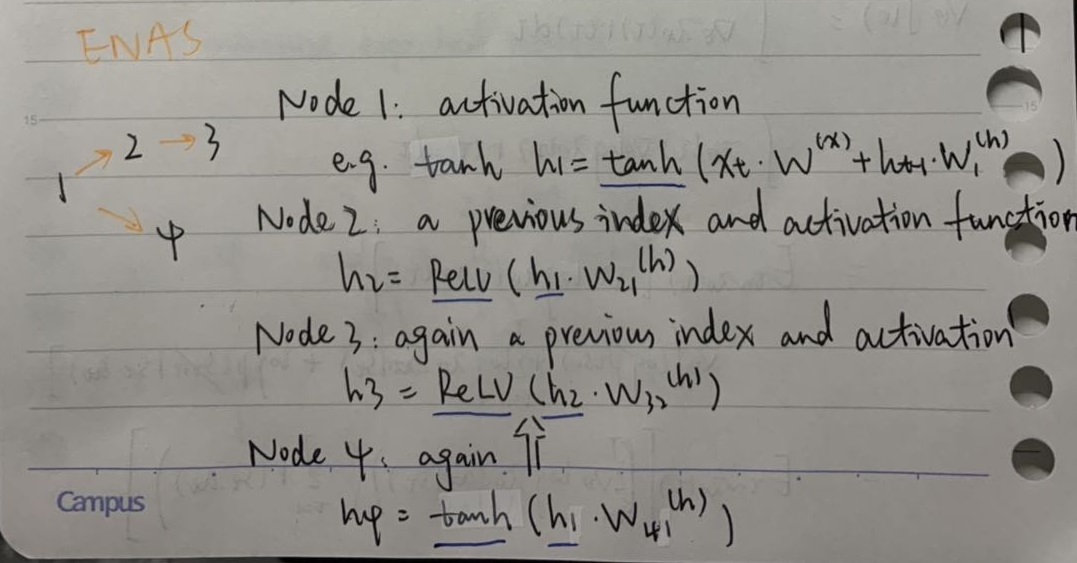 ENAS
Node 1: activation function
e.g. tanh h1 = tanh (xt · W^(x) + ht-1 · W1^(h))
1 → 2 → 3
1 → 4
Node 2: a previous index and activation function
h2 = ReLU (h1 · W21^(h))
Node 3: again a previous index and activation
h3 = ReLU (h2 · W32^(h))
Node 4: again ⇑
h4 = tanh (h1 · W41^(h))
Campus
15
15